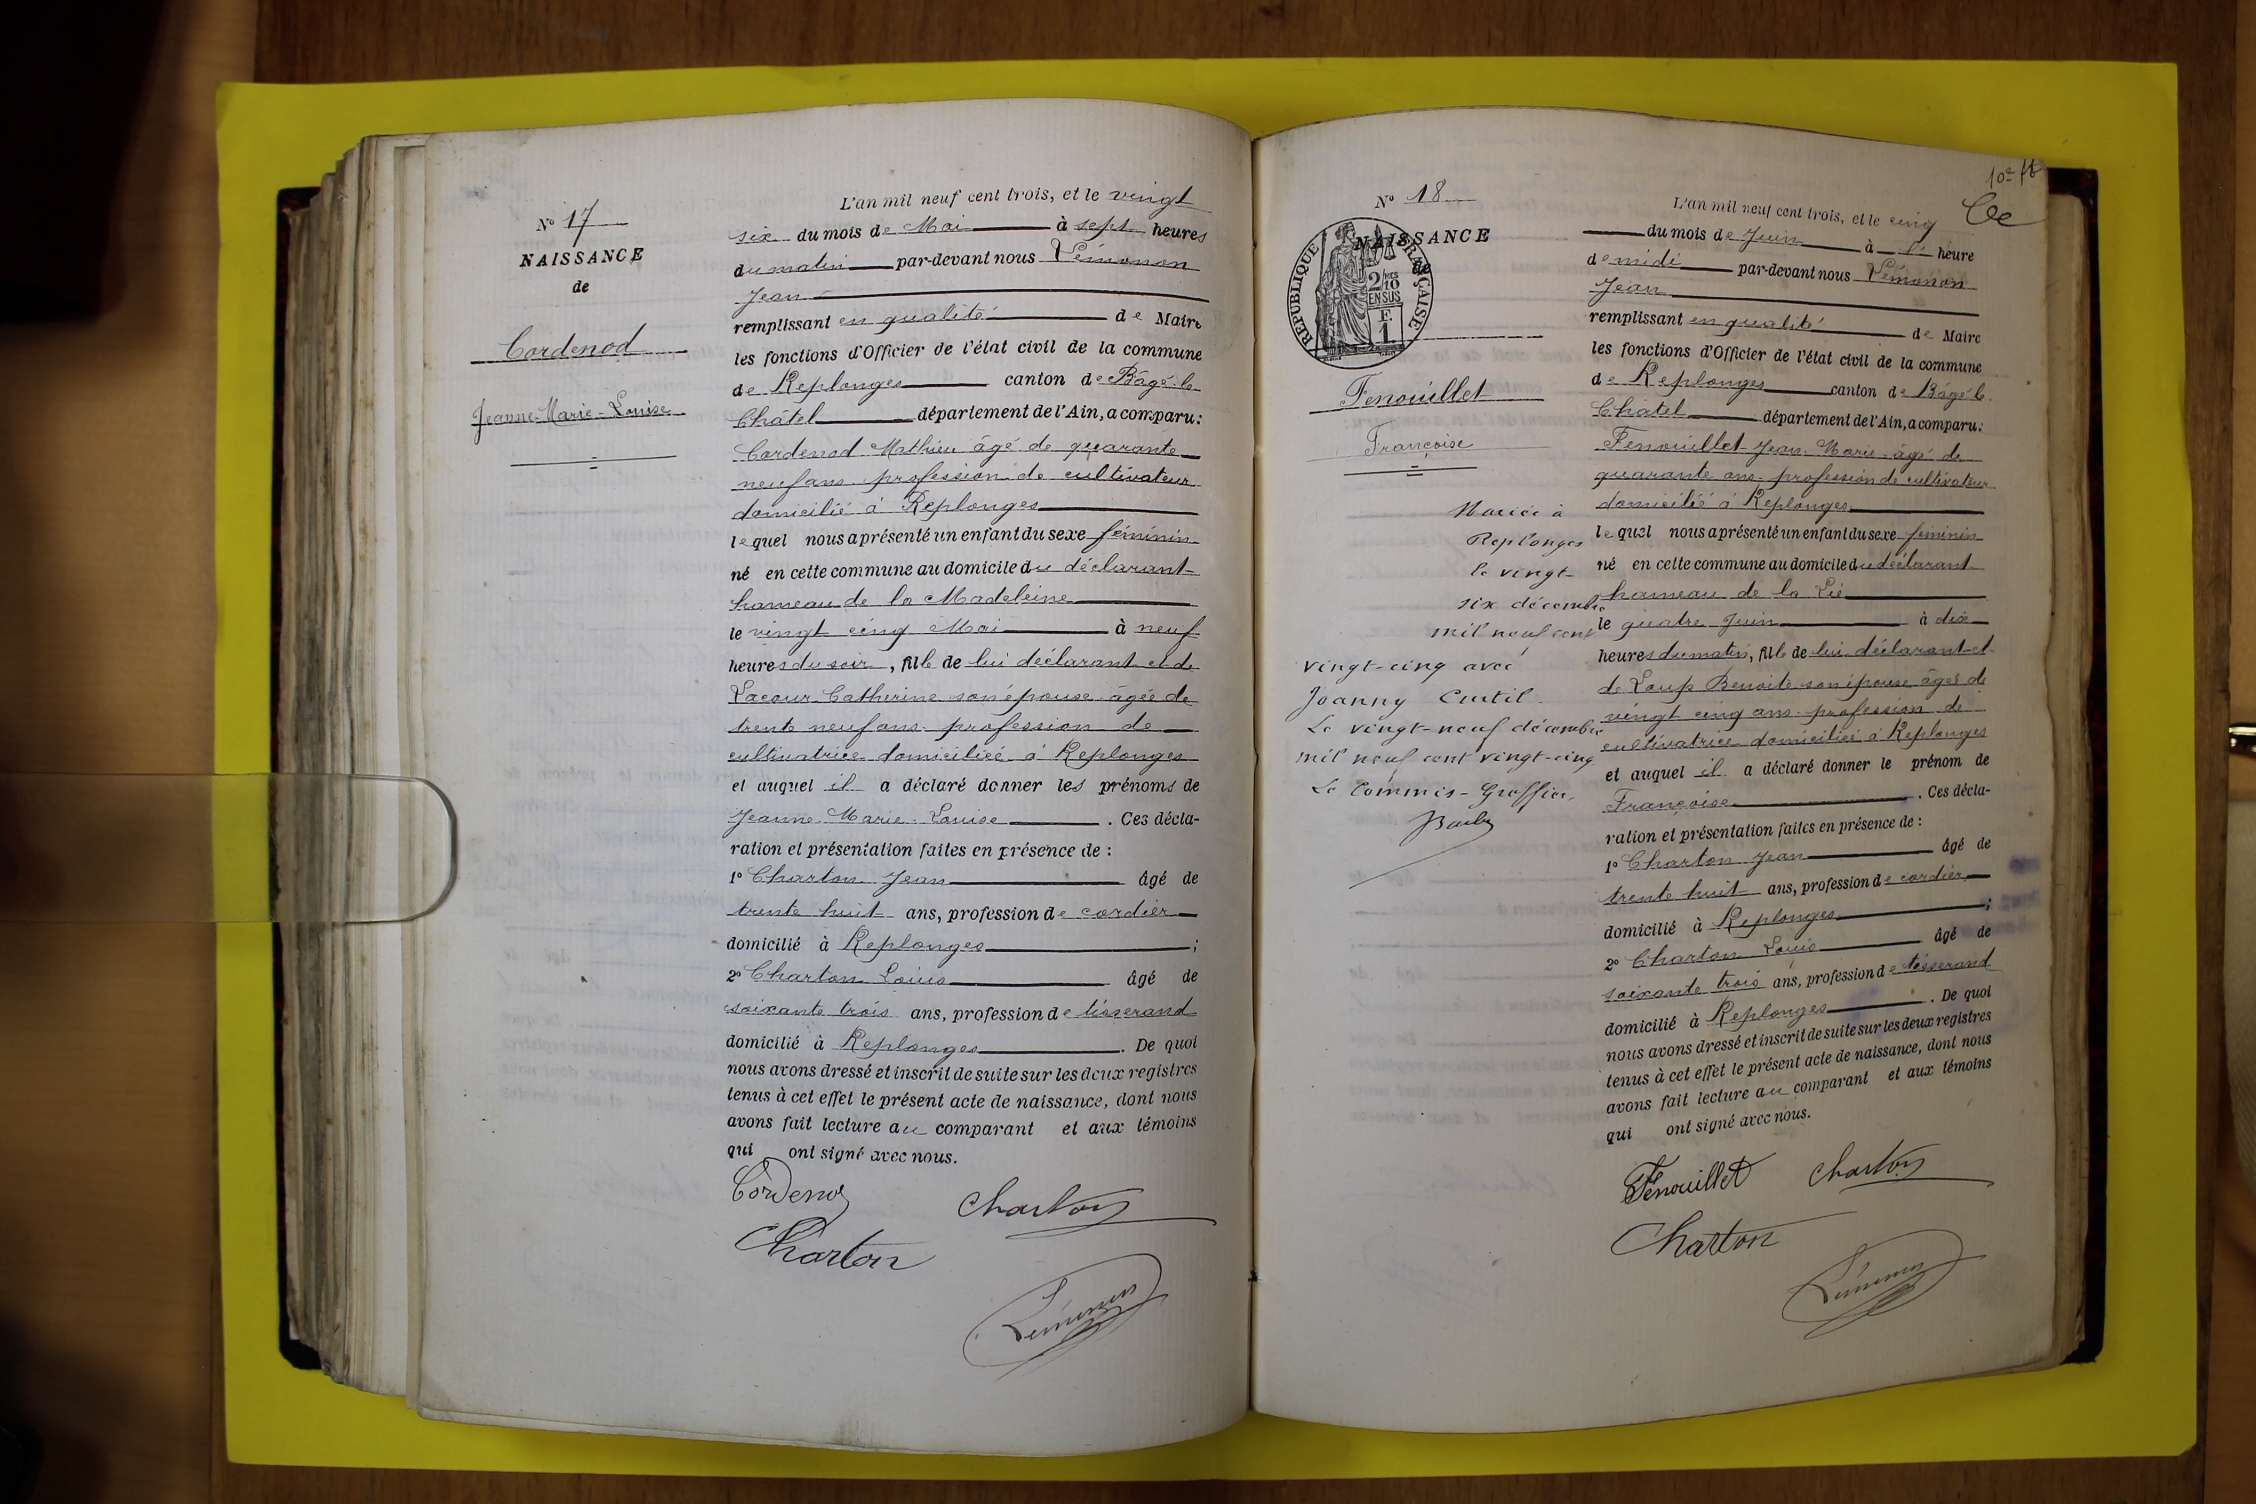 N° 17
NAISSANCE
de
Cordenod
Jeanne-Marie-Louise
L'an mil neuf cent trois, et le vingt
six du mois de Mai à sept heures
du matin par-devant nous Lémonon
Jean
remplissant en qualité de Maire
les fonctions d'Officier de l'état civil de la commune
de Replonges canton de Bâgé-le-
Châtel département de l'Ain, a comparu:
Cordenod Mathieu âgé de quarante
neuf ans profession de cultivateur
domicilié à Replonges
lequel nous a présenté un enfant du sexe féminin
né en cette commune au domicile du déclarant
hameau de la Madeleine
le vingt cinq Mai à neuf
heures du soir, fille de lui déclarant et de
Lacour Catherine son épouse âgée de
trente neuf ans profession de
cultivatrice domiciliée à Replonges
et auquel il a déclaré donner les prénoms de
Jeanne-Marie-Louise. Ces décla-
ration et présentation faites en présence de :
1° Charton Jean âgé de
trente huit ans, profession de cordier
domicilié à Replonges;
2° Charton Louis âgé de
soixante trois ans, profession de tisserand
domicilié à Replonges. De quoi
nous avons dressé et inscrit de suite sur les deux registres
tenus à cet effet le présent acte de naissance, dont nous
avons fait lecture au comparant et aux témoins
qui ont signé avec nous.
Cordenod
Charton
Charton
Lémonon
10e
N° 18
NAISSANCE
de
RÉPUBLIQUE FRANÇAISE
2/10
EN SUS
F.
1
Fenouillet
Françoise
Mariée à
Replonges
le vingt-
six décembre
mil neuf cent
vingt-cinq avec
Joanny Curtil.
Le vingt-neuf décembre
mil neuf cent vingt-cinq
Le Commis-Greffier,
L'an mil neuf cent trois, et le cinq
du mois de Juin à heure
de midi par-devant nous Lémonon
Jean
remplissant en qualité de Maire
les fonctions d'Officier de l'état civil de la commune
de Replonges canton de Bâgé-le-
Châtel département de l'Ain, a comparu:
Fenouillet Jean Marie âgé de
quarante ans profession de cultivateur
domicilié à Replonges
lequel nous a présenté un enfant du sexe féminin
né en cette commune au domicile du déclarant
hameau de la
le quatre Juin à dix
heures du matin, fille de lui déclarant et
de Loup Benoite son épouse âgée de
vingt cinq ans profession de
cultivatrice domiciliée à Replonges
et auquel il a déclaré donner le prénom de
Françoise. Ces décla-
ration et présentation faites en présence de :
1° Charton Jean âgé de
trente huit ans, profession de cordier
domicilié à Replonges;
2° Charton Louis âgé de
soixante trois ans, profession de tisserand
domicilié à Replonges. De quoi
nous avons dressé et inscrit de suite sur les deux registres
tenus à cet effet le présent acte de naissance, dont nous
avons fait lecture au comparant et aux témoins
qui ont signé avec nous.
Fenouillet Charton
Charton
Lémonon